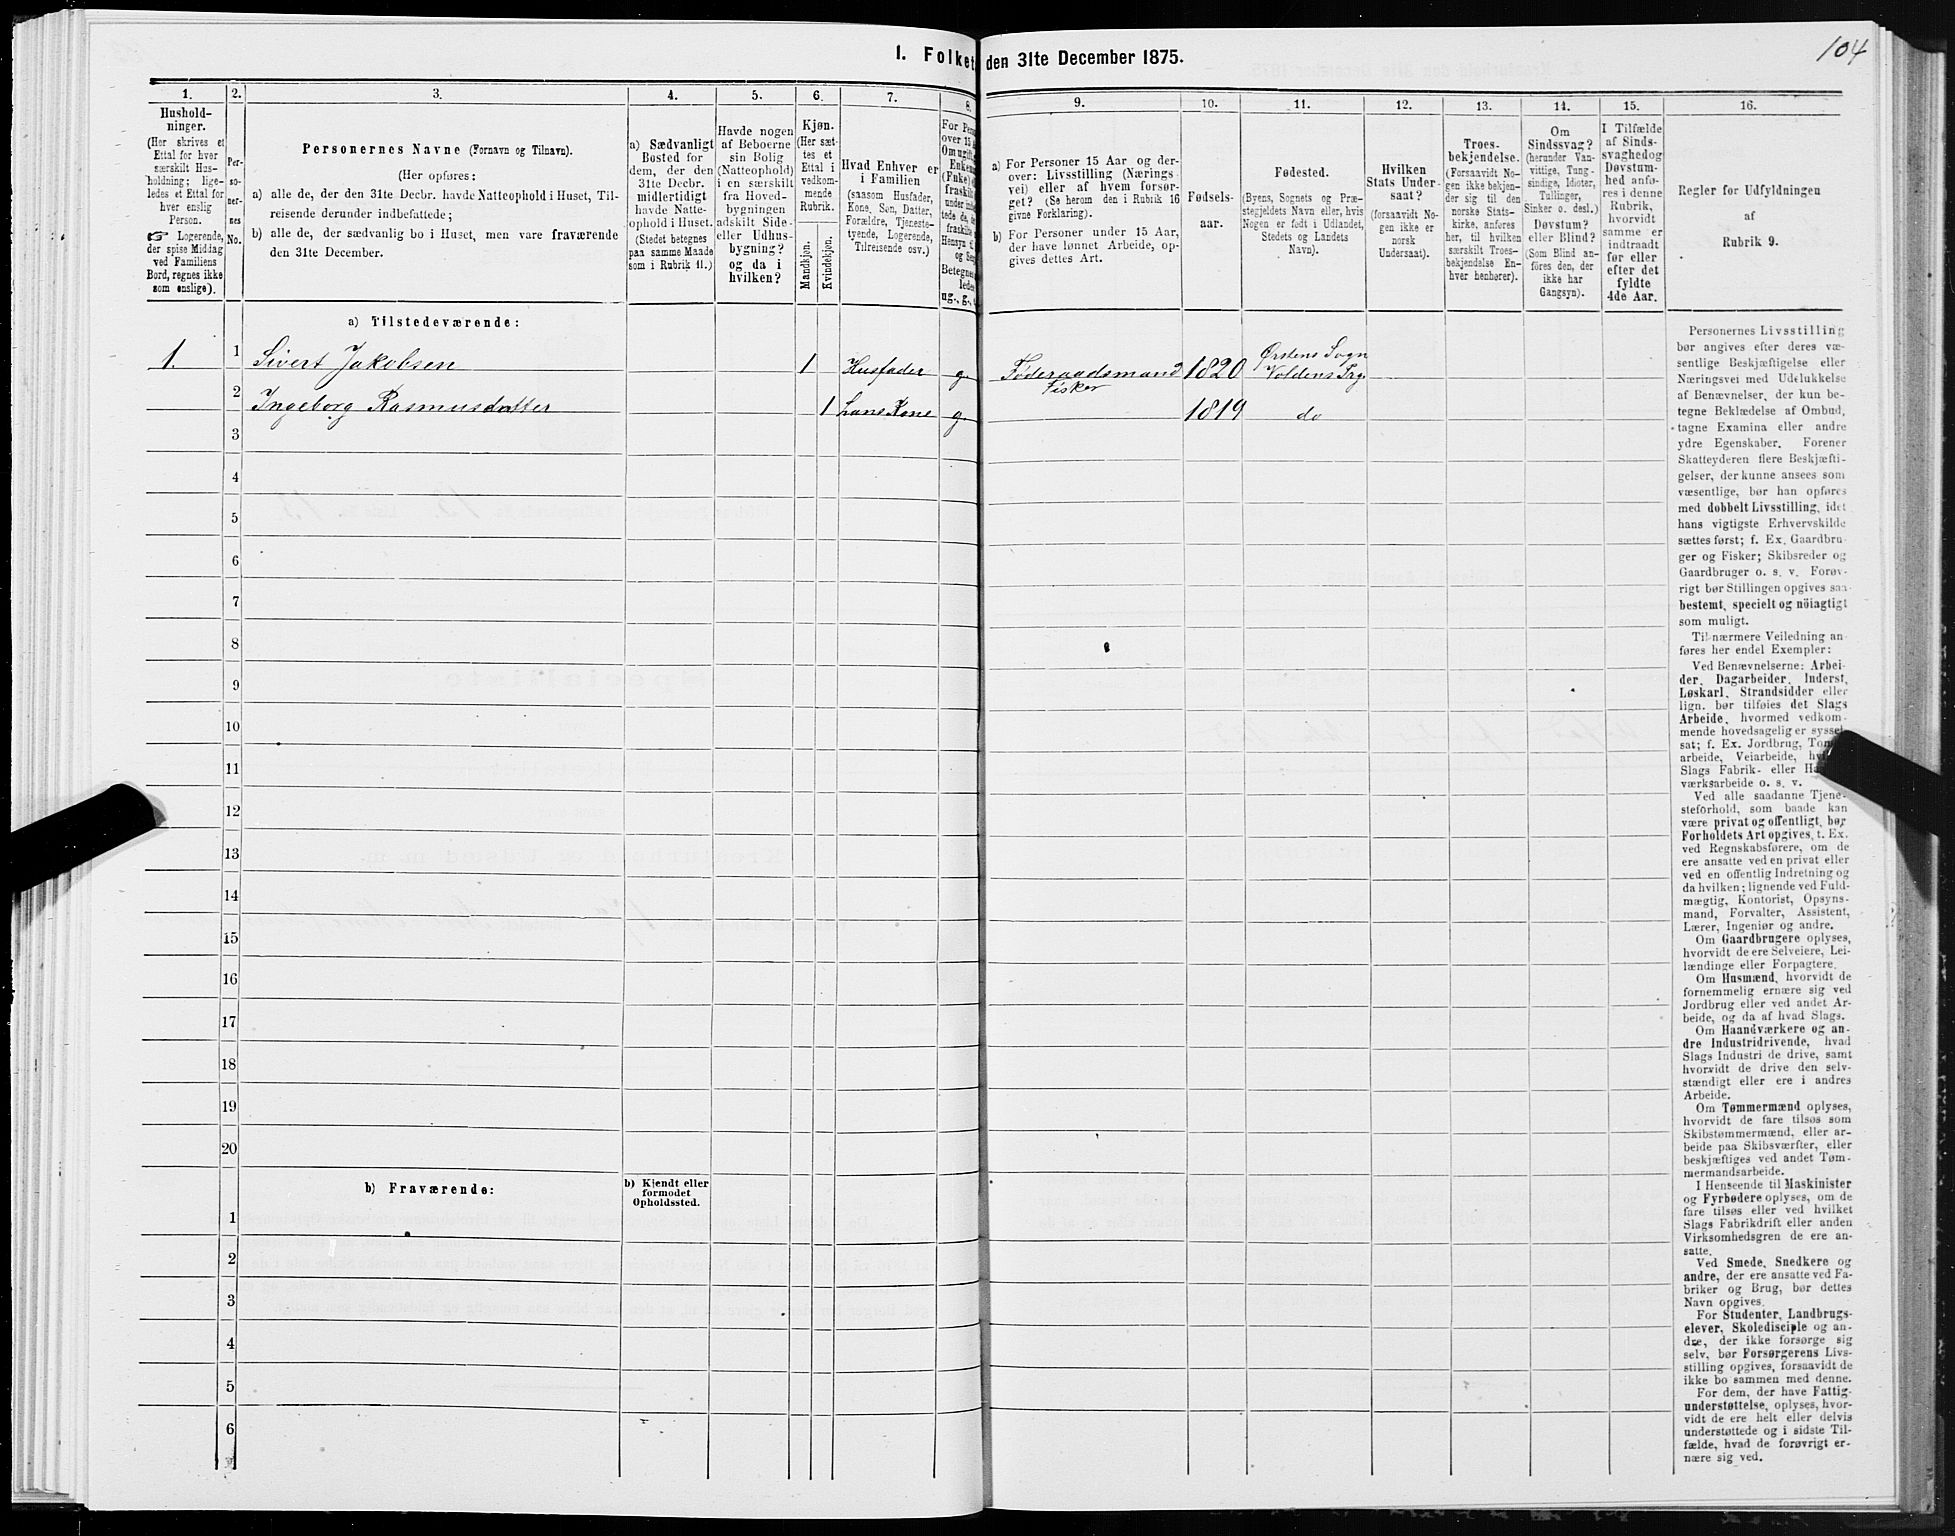 104
1. Folket den 31te December 1875.
1.
2.
3.
4.
5.
6.
7.
8.
9.
10.
11.
12.
13.
14.
15.
16.
Hushold-
ninger.
(Her skrives et
Ettal for hver
særskilt Hus-
holdning; lige-
ledes et Ettal for
hver enslig
Person.
☞ Logerende,
der spise Middag
ved Familiens
Bord, regnes ikke
som enslige).
Per-
so-
ner-
nes
No.
Personernes Navne (Fornavn og Tilnavn).
(Her opføres:
a) alle de, der den 31te Decbr. havde Natteophold i Huset, Til-
reisende derunder indbefattede;
b) alle de, der sædvanlig bo i Huset, men vare fraværende
den 31te December.
a) Sædvanligt
Bosted for
dem, der den
31te Decbr.
midlertidigt
havde Natte-
ophold i Huset.
(Stedet betegnes
paa samme Maade
som i Rubrik 11.)
Havde nogen
af Beboerne
sin Bolig
(Natteophold)
i en særskilt
fra Hoved-
bygningen
adskilt Side-
eller Udhus-
bygning?
og da i
hvilken?
Kjøn.
(Her sæt-
tes et
Ettal i
vedkom-
mende
Rubrik.
Mandkjøn.
Kvindekjøn.
Hvad Enhver er
i Familien
(saasom Husfader,
Kone, Søn, Datter,
Forældre, Tjeneste-
tyende, Logerende,
Tilreisende osv.)
For Pers
over 15 A
Om ugift,
Enkem
(Enke) e
fraskilt
under indbe
tede de, d
fraskilte
Hensyn t
og Sen
Betegnes
ledes
ug., g.,
a) For Personer 15 Aar og der-
over: Livsstilling (Nærings-
vei) eller af hvem forsør-
get? (Se herom den i Rubrik 16
givne Forklaring).
b) For Personer under 15 Aar,
der have lønnet Arbeide, op-
gives dettes Art.
Fødsels-
aar.
Fødested.
(Byens, Sognets og Præ-
stegjeldets Navn eller, hvis
Nogen er født i Udlandet,
Stedets og Landets
Navn).
Hvilken
Stats Under-
saat?
(forsaavidt No-
gen ikke er
norsk
Undersaat).
Troes-
bekjendelse.
(Forsaavidt No-
gen ikke bekjen-
der sig til den
norske Stats-
kirke, anføres
her, til hvilken
særskilt Troes-
bekjendelse En-
hver henhører).
Om
Sindssvag?
(herunder Van-
vittige, Tung-
sindige, Idioter,
Tullinger,
Sinker o. desl.)
Døvstum?
eller Blind?
(Som Blind an-
føres den, der
ikke har
Gangsyn).
I Tilfælde
af Sinds-
svaghed og
Døvstum-
hed anfø-
res i denne
Rubrik,
hvorvidt
samme er
indtraadt
før eller
efter det
fyldte
4de Aar.
Regler for Udfyldningen
af
Rubrik 9.
a) Tilstedeværende:
1. 1 Sivert Jakobsen 1 Husfader g. Føderaadsmand Fisker 1820 Ørstens Sogn Voldens Prg.
2 Ingeborg Rasmusdatter 1 hans Kone g. 1819 do
3
4
5
6
7
8
9
10
11
12
13
14
15
16
17
18
19
20
b) Fraværende:
b) Kjendt eller
formodet
Opholdssted.
1
2
3
4
5
6
Personernes Livsstilling
bør angives efter deres væ-
sentlige Beskjæftigelse eller
Næringsvei med Udelukkelse
af Benævnelser, der kun be-
tegne Beklædelse af Ombud,
tagne Examina eller andre
ydre Egenskaber. Forener
Skatteyderen flere Beskjæfti-
gelser, der kunne ansees som
væsentlige, bør han opføres
med dobbelt Livsstilling, idet
hans vigtigste Erhvervskilde
sættes først; f. Ex. Gaardbru-
ger og Fisker; Skibsreder og
Gaardbruger o. s. v. Forøv-
rigt bør Stillingen opgives saa
bestemt, specielt og nöiagtigt
som muligt.
Til nærmere Veiledning an-
føres her endel Exempler:
Ved Benævnelserne: Arbei-
der, Dagarbeider, Inderst,
Løskarl, Strandsidder eller
lign. bør tilføies det Slags
Arbeide, hvormed vedkom-
mende hovedsagelig er syssel-
sat; f. Ex. Jordbrug, Tom
arbeide, Veiarbeide, hv
Slags Fabrik- eller Ha
værksarbeide o. s. v.
Ved alle saadanne Tjene-
steforhold, som baade kan
være privat og offentligt, bør
Forholdets Art opgives, t. Ex.
ved Regnskabsførere, om de
ere ansatte ved en privat eller
ved en offentlig Indretning og
da hvilken; lignende ved Fuld-
mægtig, Kontorist, Opsyns-
mand, Forvalter, Assistent,
Lærer, Ingeniør og andre.
Om Gaardbrugere oplyses,
hvorvidt de ere Selveiere, Lei-
lændinge eller Forpagtere.
Om Husmænd, hvorvidt de
fornemmelig ernære sig ved
Jordbrug eller ved andet Ar-
beide, og da af hvad Slags.
Om Haandværkere og an-
dre Industridrivende, hvad
Slags Industri de drive, samt
hvorvidt de drive den selv-
stændigt eller ere i andres
Arbeide.
Om Tømmermænd oplyses,
hvorvidt de fare tilsøs som
Skibstømmermænd, eller ar-
beide paa Skibsværfter, eller
beskjæftiges ved andet Tøm-
mermandsarbeide.
I Henseende til Maskinister
og Fyrbødere oplyses, om de
fare tilsøs eller ved hvilket
Slags Fabrikdrift eller anden
Virksomhedsgren de ere an-
satte.
Ved Smede, Snedkere og
andre, der ere ansatte ved Fa-
briker og Brug, bør dettes
Navn opgives.
For Studenter, Landbrugs-
elever, Skoledisciple og an-
dre, der ikke forsørge sig
selv, bør Forsørgerens Livs-
stilling opgives, forsaavidt de
ikke bo sammen med denne.
For dem, der have Fattig-
understøttelse, oplyses, hvor-
vidt de ere helt eller delvis
understøttede og i sidste Til-
fælde, hvad de forøvrigt er-
nære sig ved.